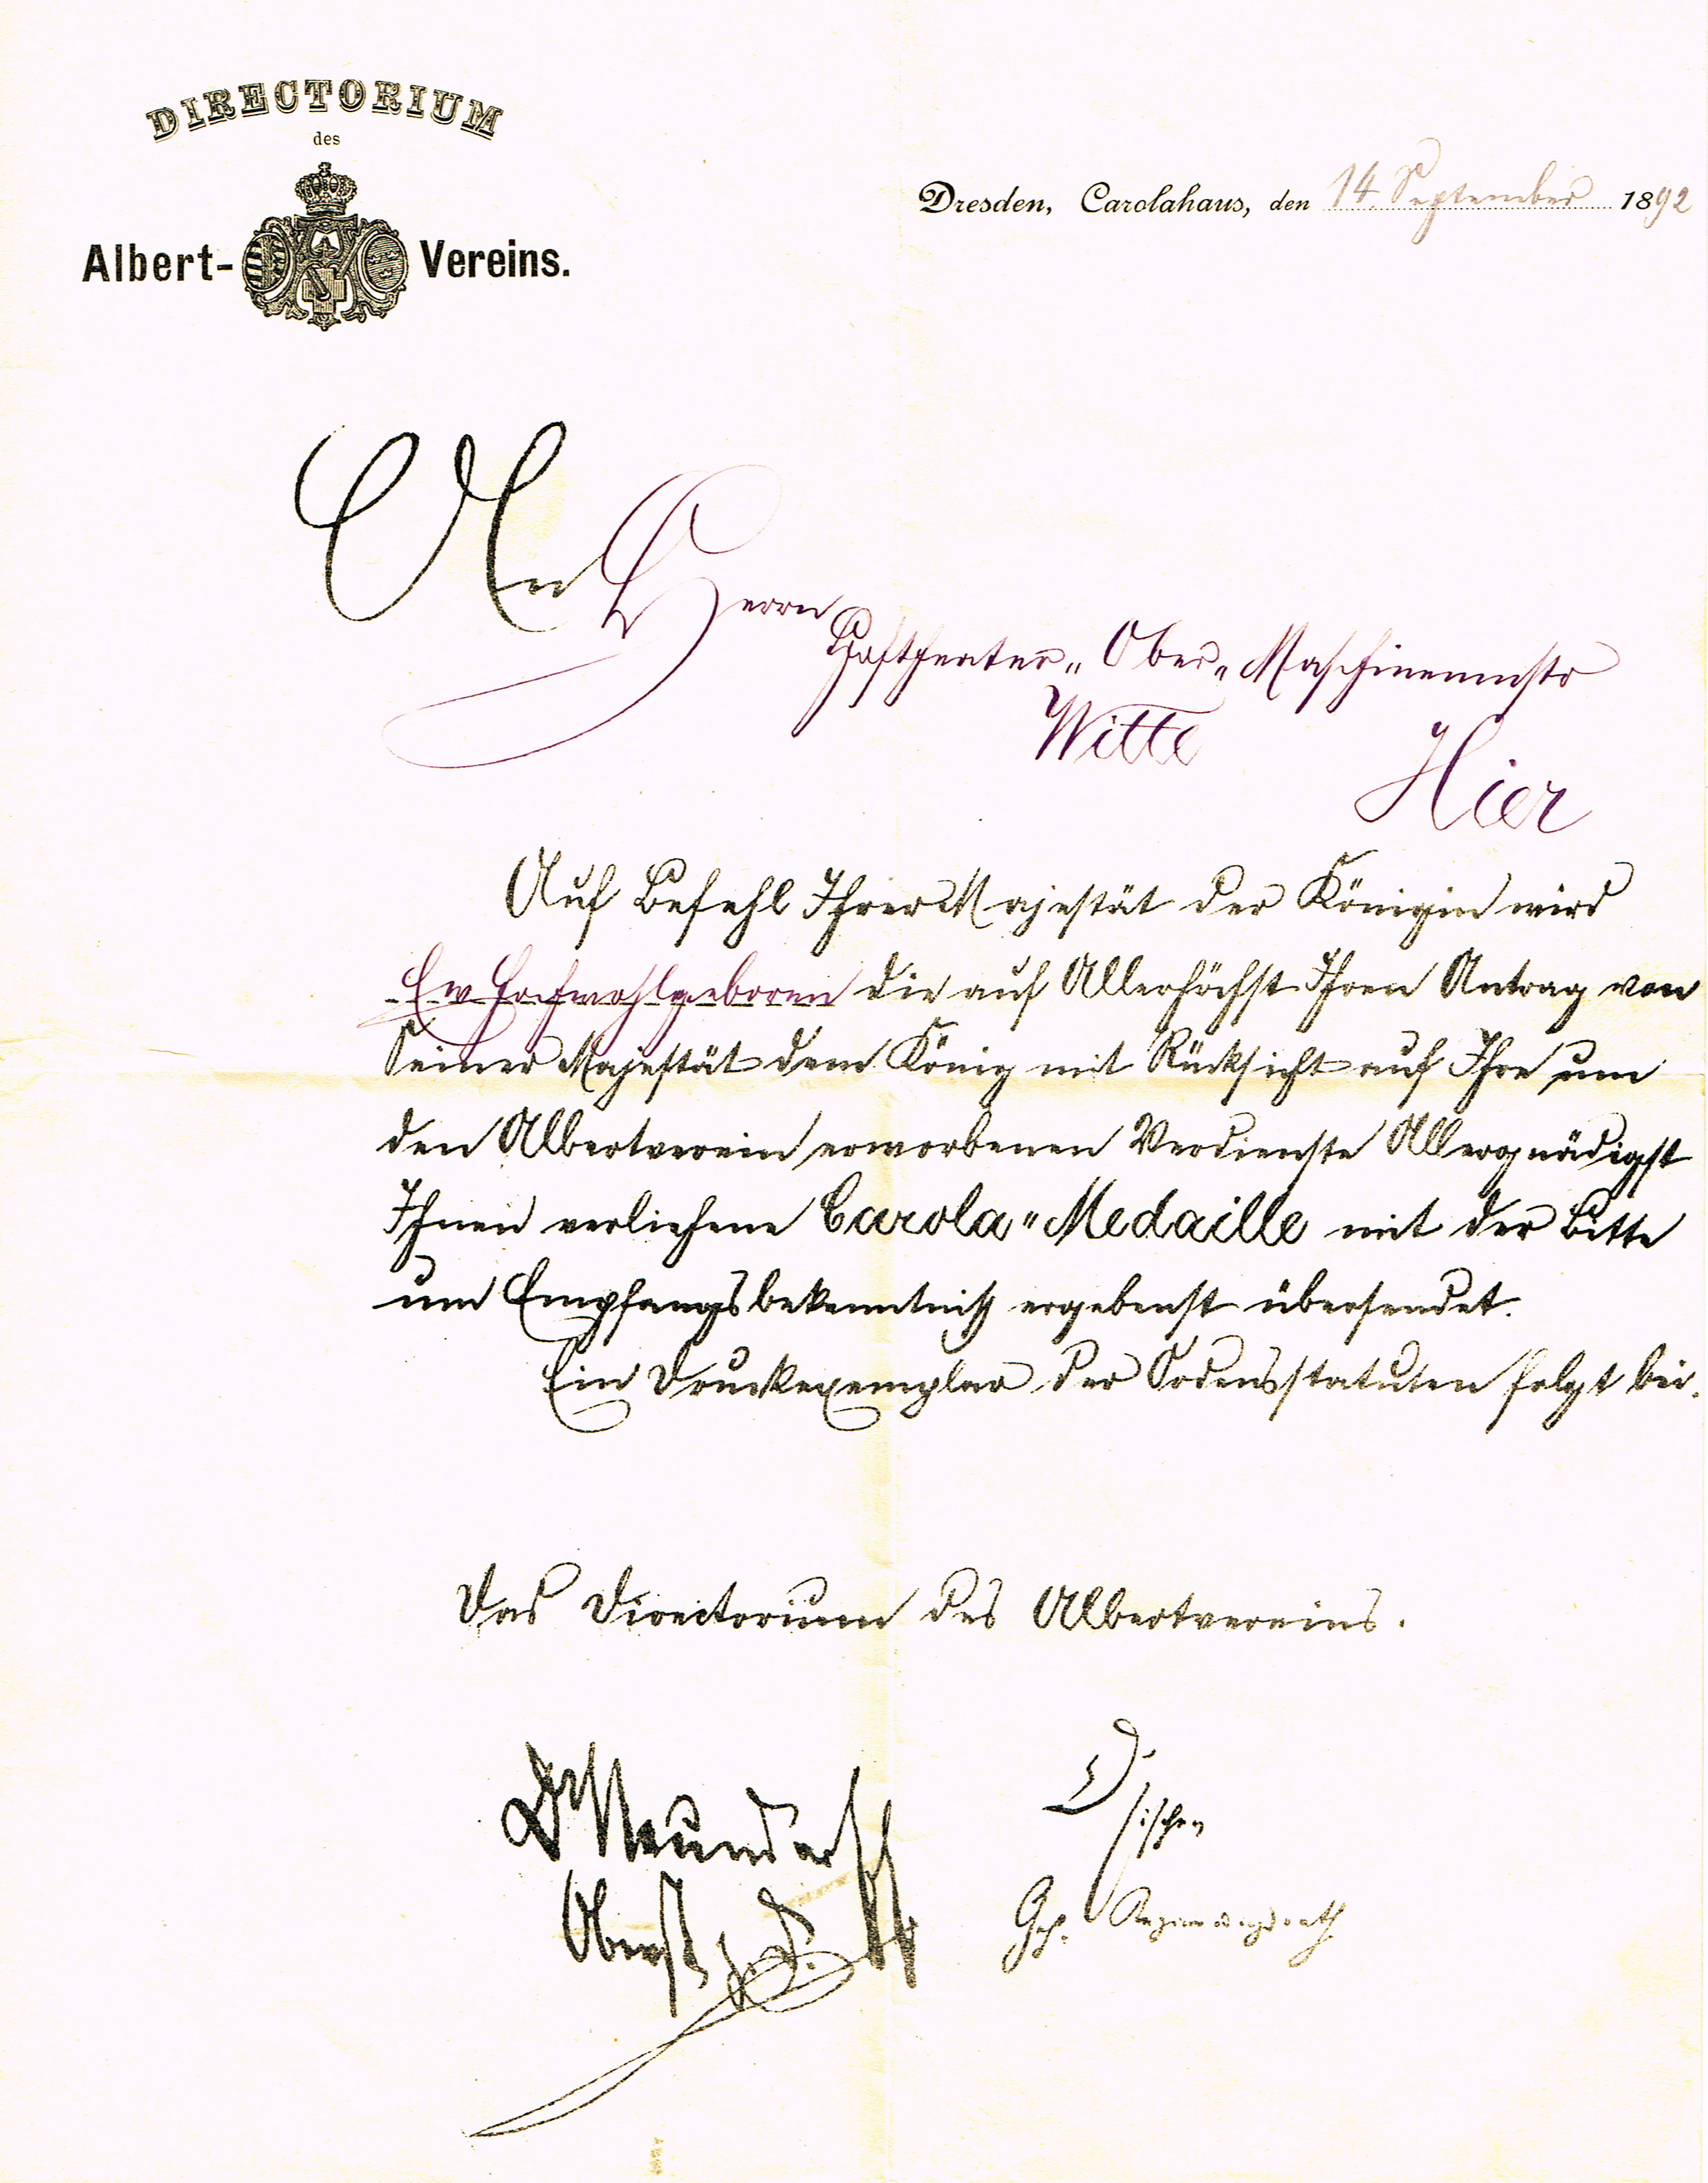 DIRECTORIUM
des
Albert- Vereins.
Dresden, Carolahaus, den 14. September 1892
An Herrn
Hoftheater-Ober-Maschinenmstr
Witte
Hier
Auf Befehl Ihrer Majestät der Königin wird
Ew Hochwohlgeboren die auf Allerhöchst-Ihren Antrag von
Seiner Majestät dem König mit Rücksicht auf Ihre um
den Albertverein erworbenen Verdienste Allergnädigst
Ihnen verliehene Carola-Medaille mit der Bitte
um Empfangsbekenntniß ergebenst übersendet.
Ein Druckexemplar der Ordensstatuten folgt bei.
Das Directorium des Albertvereins.
Oberst z. D.
Geh. Regierungsrath